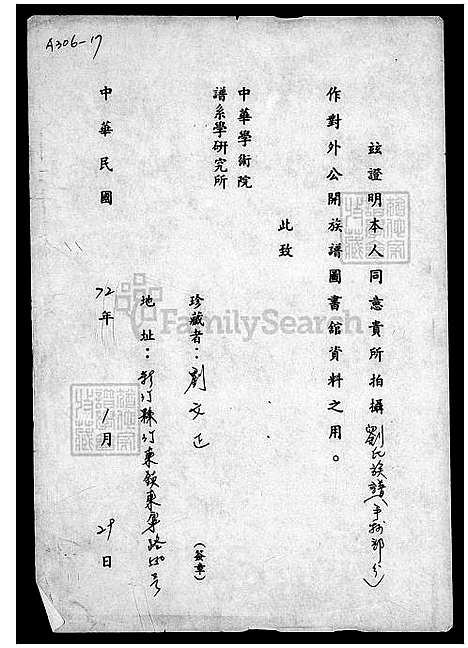 A306-17
茲證明本人同意貴所拍攝劉氏族譜(手抄部分)
作對外公開族譜圖書館資料之用。
此致
中華學術院
譜系學研究所
珍藏者：劉文正 (簽章)
地址：新竹縣竹東鎮東寧路
中華民國 72年 1月 29日
FamilySearch